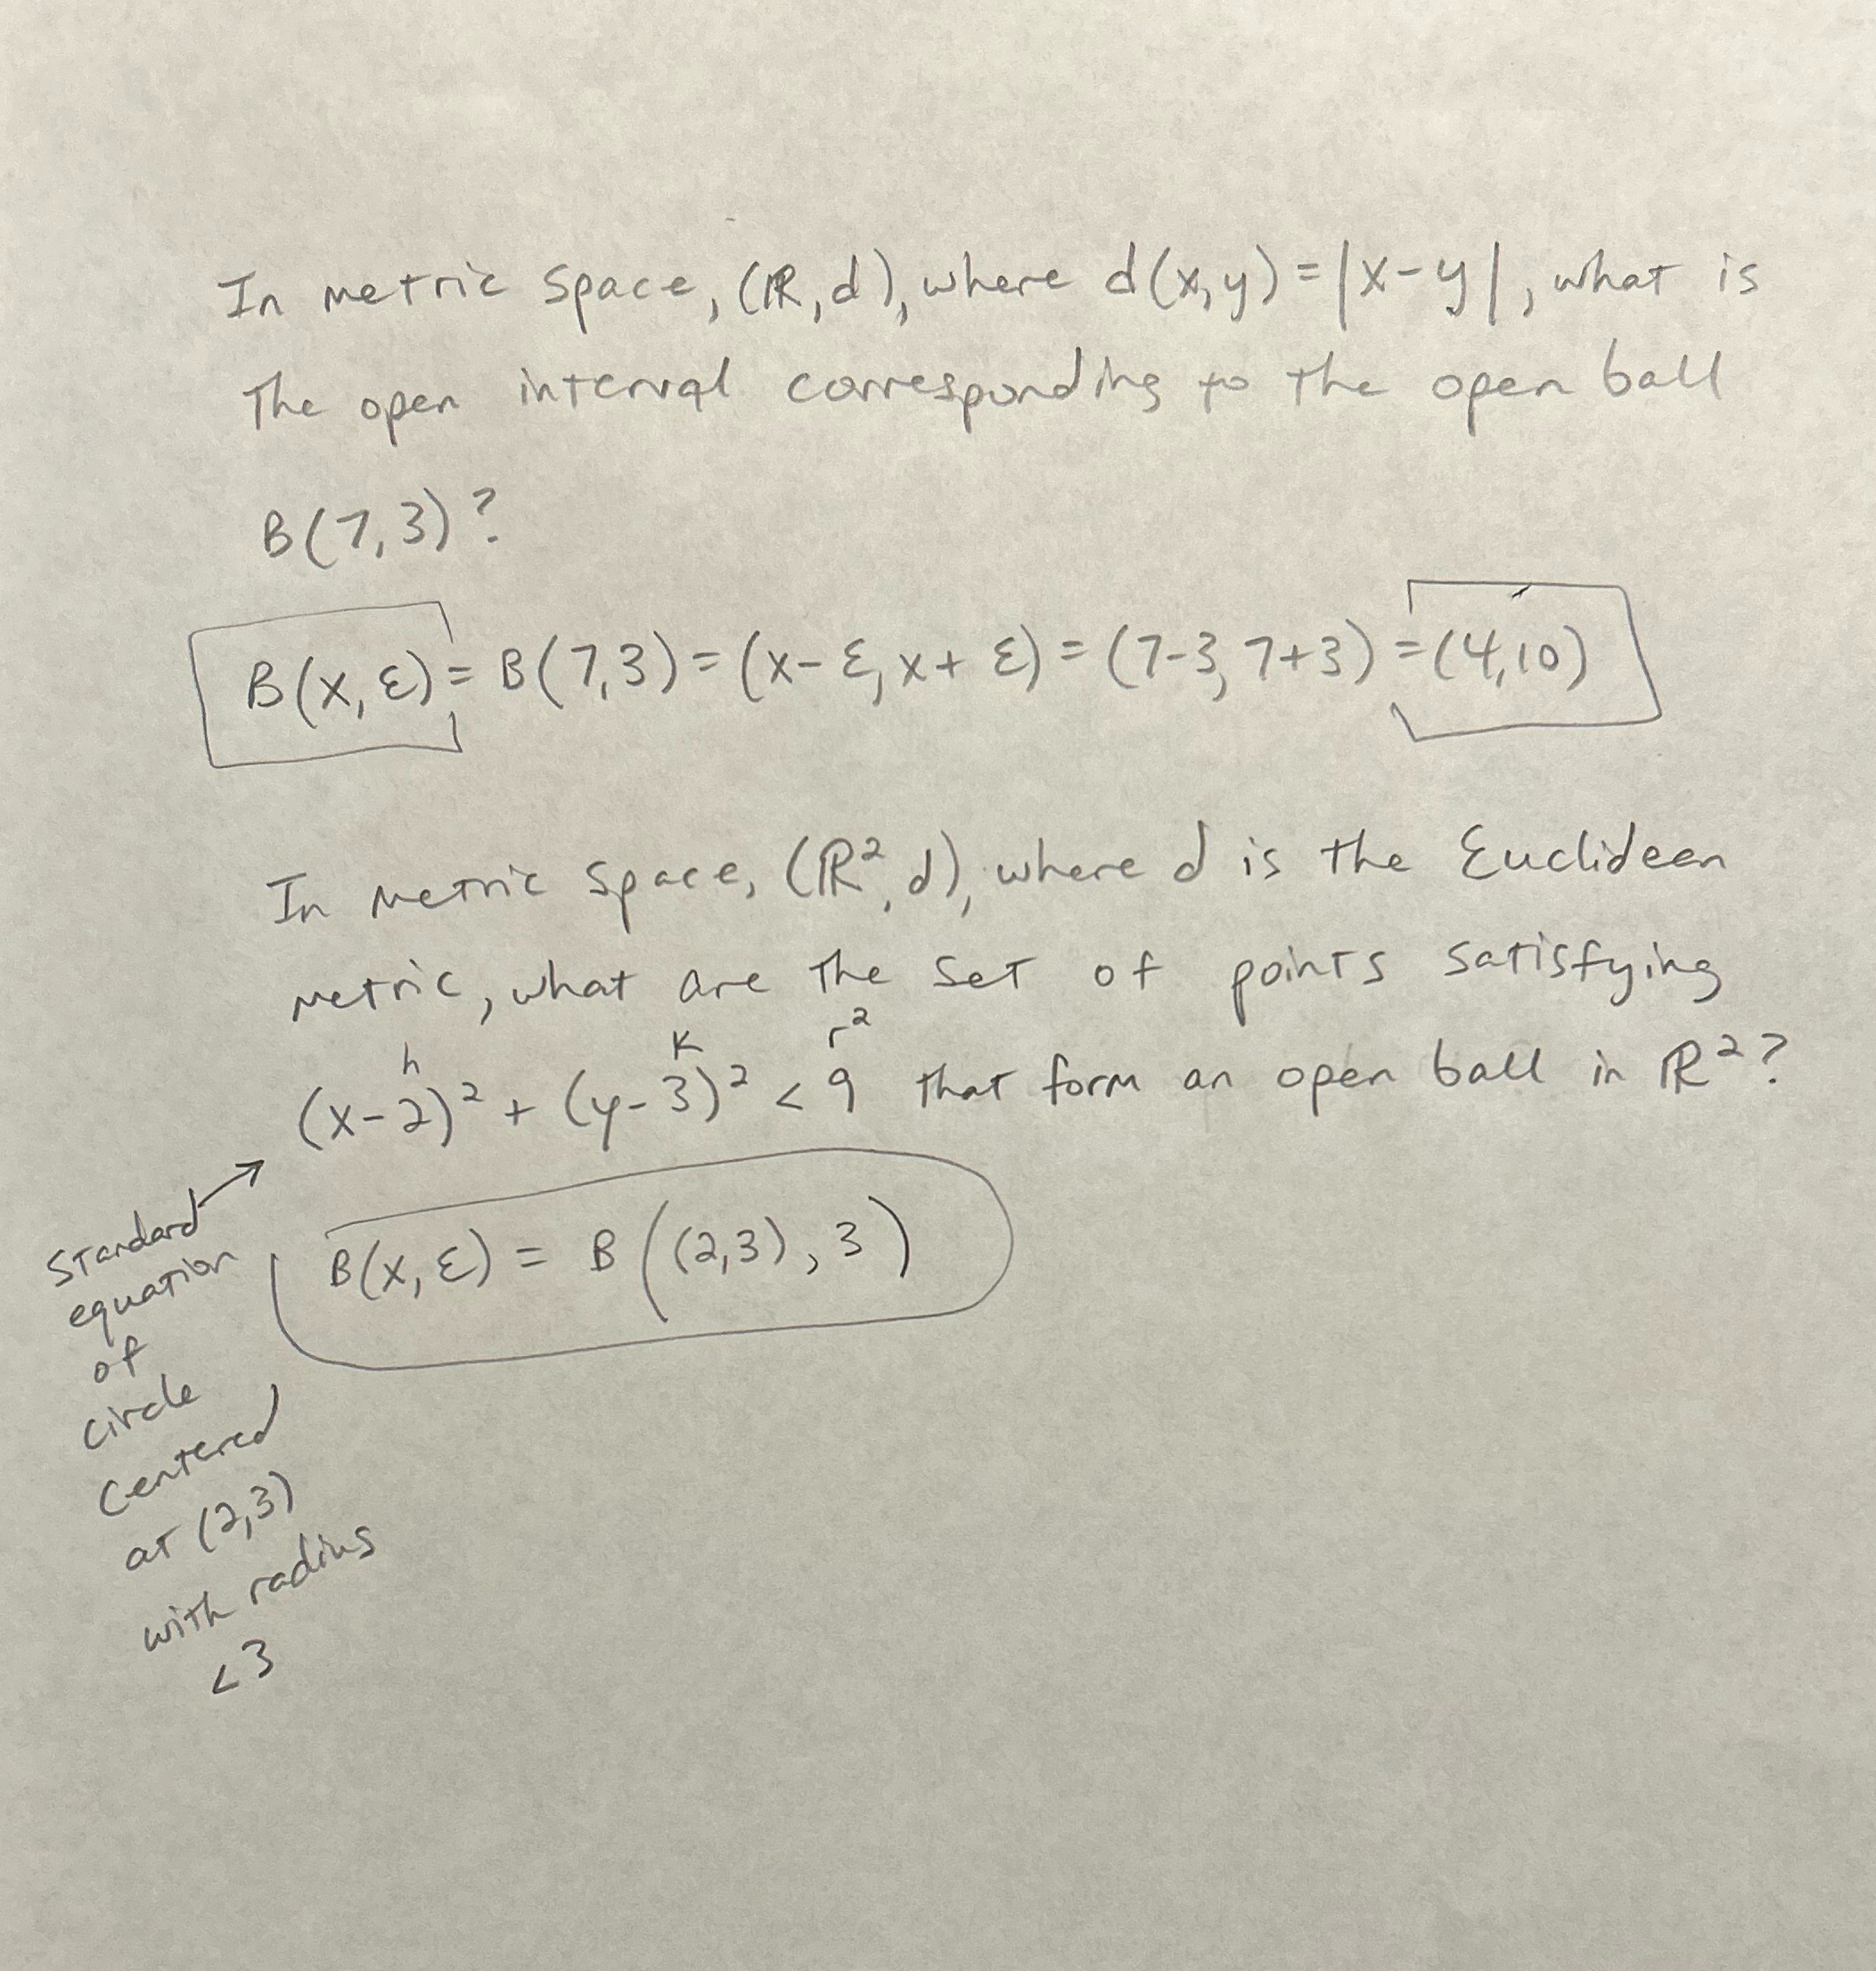 In metric space, (ℝ, d), where d(x,y) = |x-y|, what is
The open interval corresponding to the open ball
B(7,3)?
B(x, ε) = B(7,3) = (x- ε, x+ ε) = (7-3, 7+3) = (4,10)
In metric space, (ℝ², d), where d is the Euclideen
metric, what are the set of points satisfying
h K r²
(x-2)² + (y-3)² < 9 that form an open ball in ℝ²?
B(x, ε) = B((2,3), 3)
Standard
equation
of
circle
Centered
at (2,3)
with radius
<3